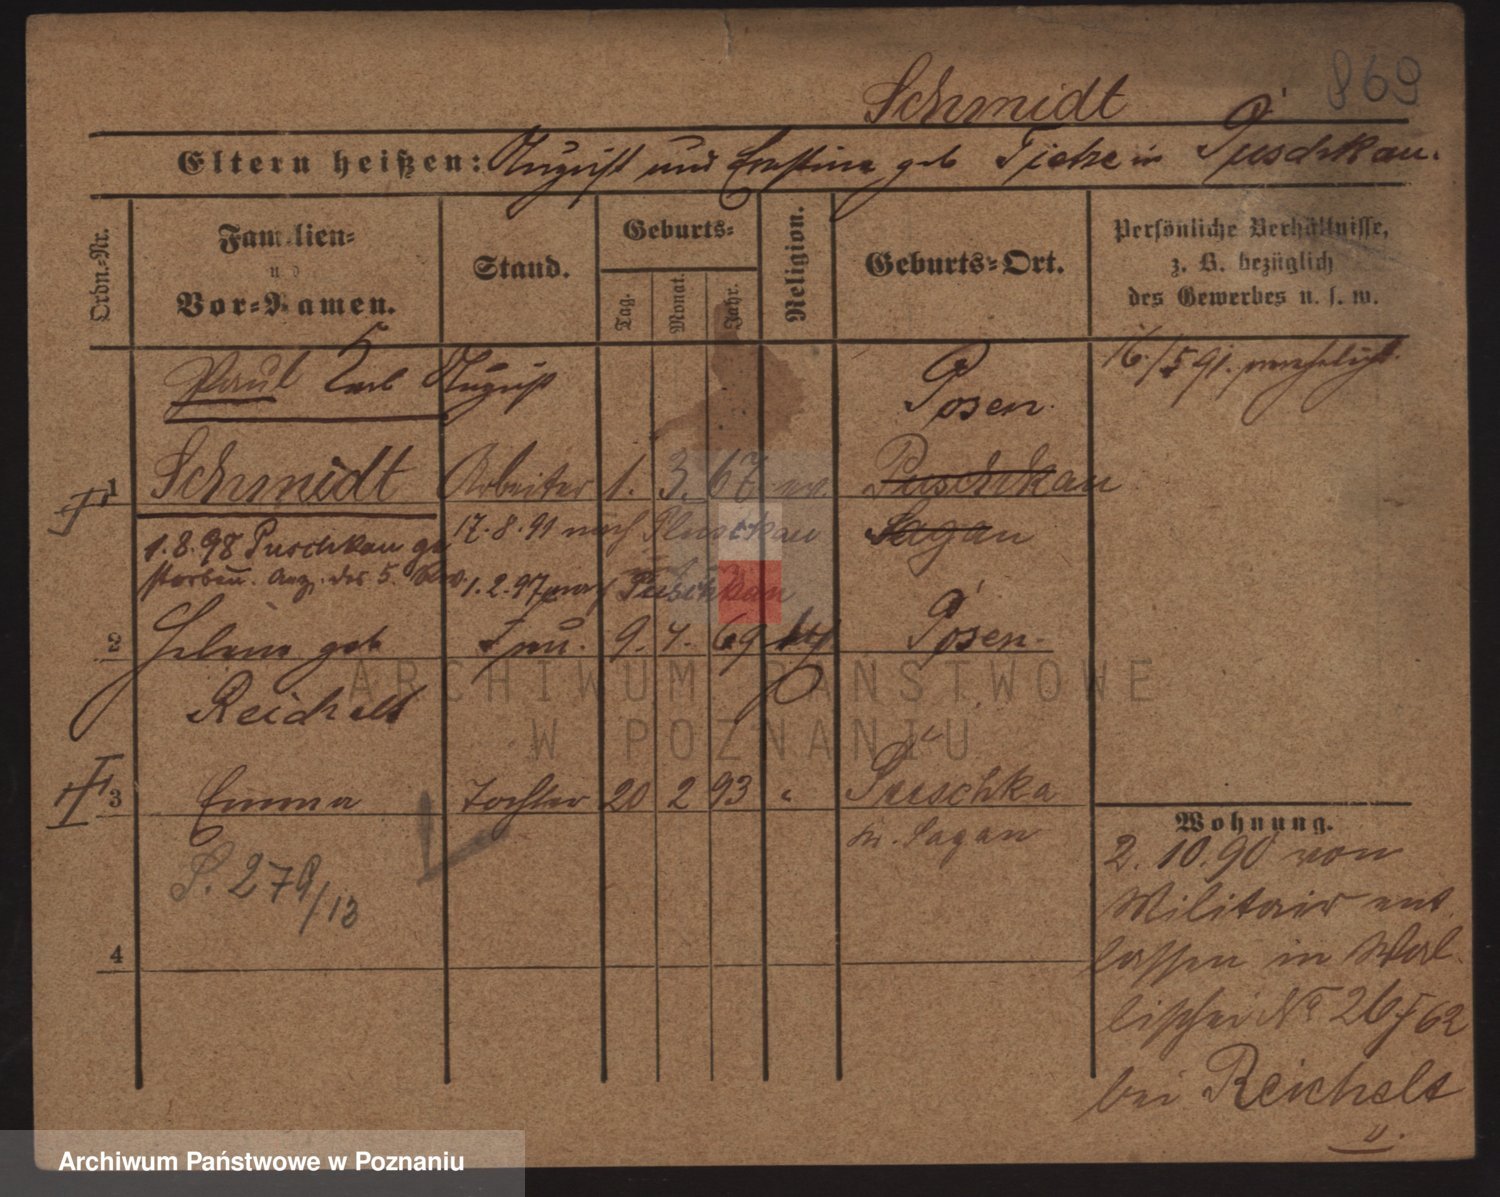 869
Schmidt
Eltern heißen: August und Ernstine geb Tietze in Puschkau.
Ordn.-Nr.
Familien-
und
Vor-Namen.
Stand.
Geburts-
Tag.
Monat.
Jahr.
Religion.
Geburts-Ort.
Persönliche Verhältnisse,
z. B. bezüglich
des Gewerbes u. s. w.
Paul Karl August
Posen
16./5 91. verehelicht.
1 Schmidt Arbeiter 1. 3. 67 ev Puschkau
17.8.91 nach Puschkau
Sagan
1.8.98 Puschkau ge
storben. Anz. des 5. Rev.
1.2.97 nach Puschkau
2 Helene geb Frau. 9. 4. 69 Posen.
Reichelt
3 Emma Tochter 20 2 93 " Puschka
Kr. Sagan
S. 279/13
4
Wohnung.
2.10.90 von
Militair ent
lassen in Wal-
lischei No 26 / 62
bei Reichelt
ARCHIWUM PAŃSTWOWE
W POZNANIU
Archiwum Państwowe w Poznaniu